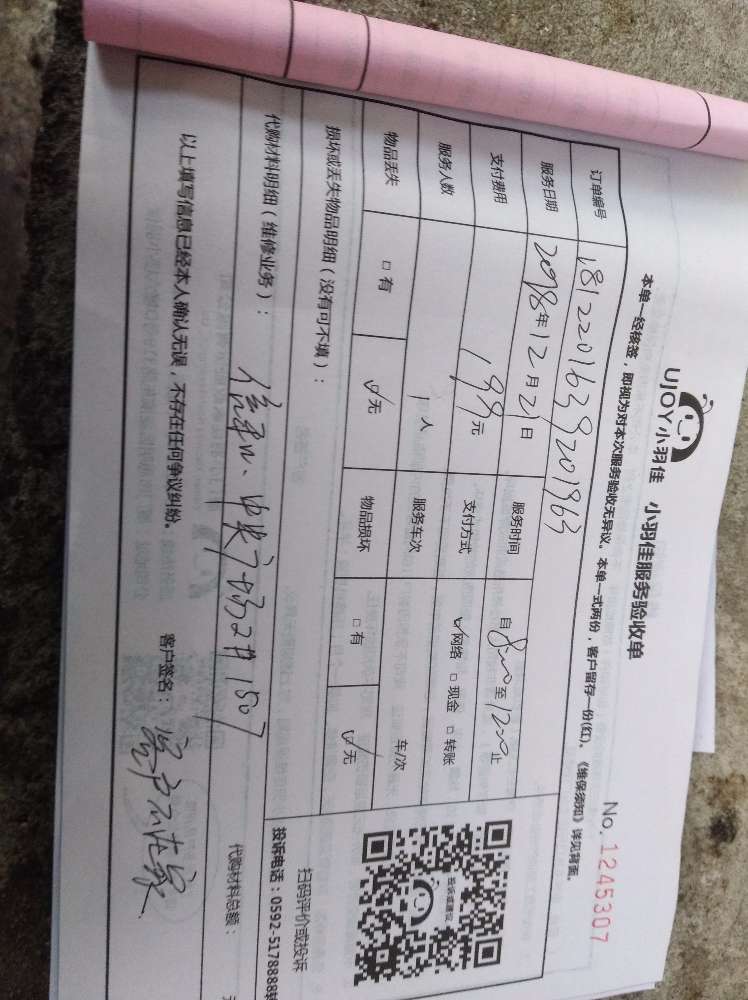 UJOY小羽佳 小羽佳服务验收单
No. 1245307
本单一经核签，即视为对本次服务验收无异议。本单一式两份，客户留存一份(红)。《维保须知》详见背面。
订单编号 1812201639201963
服务日期 2018年12月21日 服务时间 自8:00至12:00止
支付费用 199元 支付方式 ☑网络 □现金 □转账
服务人数 1人 服务车次 车/次
物品丢失 □有 ☑无 物品损坏 □有 ☑无
损坏或丢失物品明细（没有可不填）：
代购材料明细（维修业务）： 中央广场2#1507
代购材料总额：
以上填写信息已经本人确认无误，不存在任何争议纠纷。 客户签名： 客户不在家
投诉建议
扫码评价或投诉
投诉电话：0592-5178888转